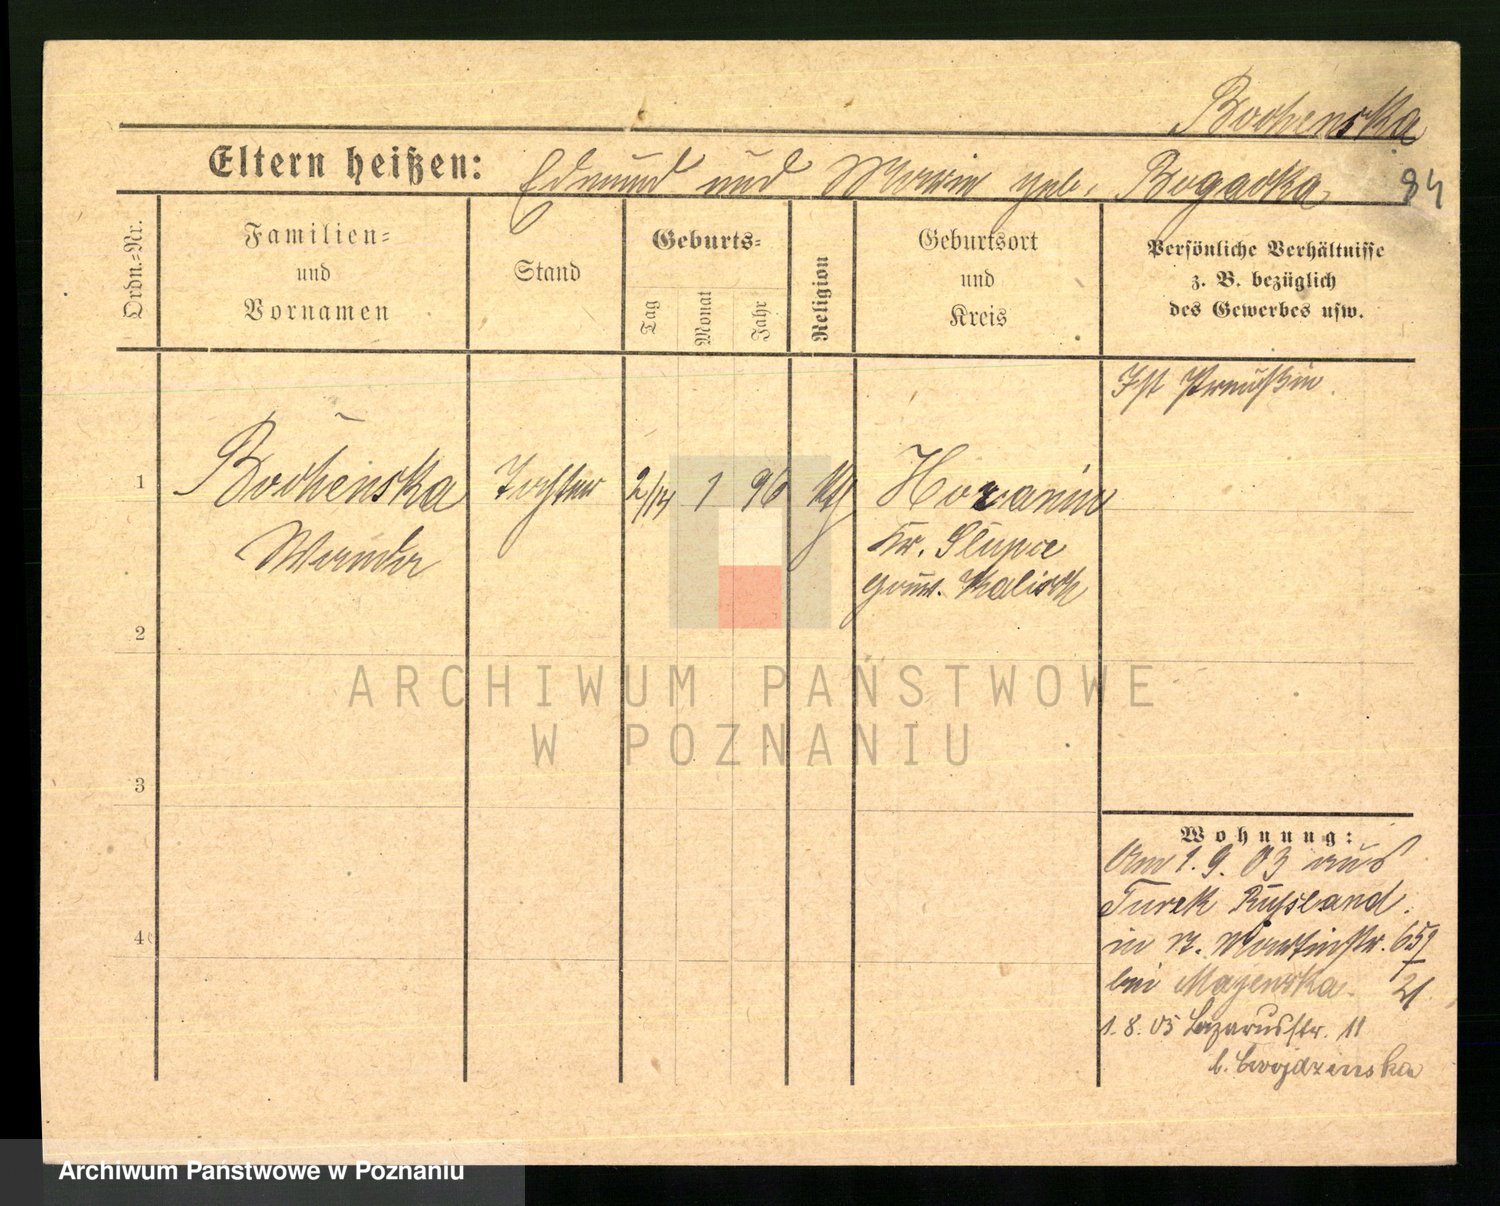 Bochenska
Eltern heißen: Edmund und Maria geb. Bogacka
84
Ordn.-Nr.
Familien-
und
Vornamen
Stand
Geburts-
Tag
Monat
Jahr
Religion
Geburtsort
und
Kreis
Persönliche Verhältnisse
z. B. bezüglich
des Gewerbes usw.
Ist Preußin.
1
Bocheńska Tochter 2/14 1 96 kth
Wanda
Kr. Slupce
gouv. Kalisch
2
3
4
Wohnung:
Am 1. 9. 03 aus
Turek Russland.
in St. Martinstr. 65
bei Majewska. 21.
1. 8. 05 Lazarusstr. 11
b. Cwojdzinska
ARCHIWUM PAŃSTWOWE
W POZNANIU
Archiwum Państwowe w Poznaniu